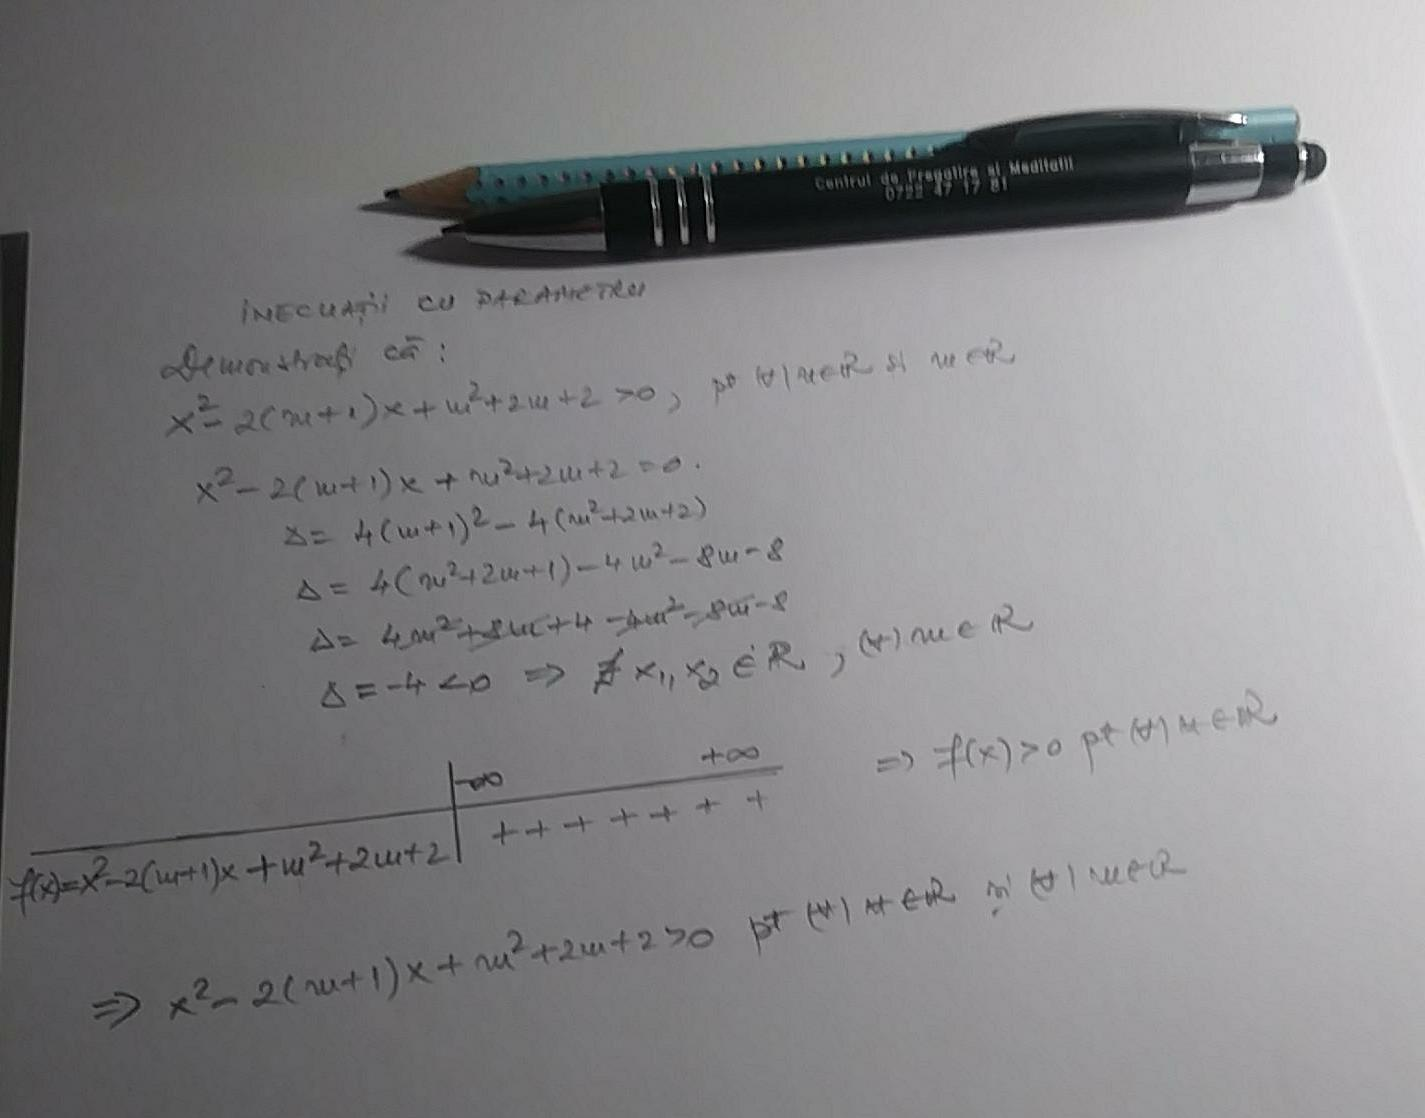 Centrul de Pregatire si Meditatii
0722 47 17 81
INECUAȚII CU PARAMETRU
Demonstrați că:
x² - 2(m+1)x + m²+2m+2 >0, pt (∀) x∈R și m∈R
x² - 2(m+1)x + m²+2m+2 =0.
Δ= 4(m+1)² - 4(m²+2m+2)
Δ = 4(m²+2m+1) - 4m² - 8m - 8
Δ= 4m²+8m+4 -4m²-8m-8
Δ = -4 <0 => ∄ x₁, x₂ ∈ R, (∀) m∈R
-∞ +∞ => f(x)>0 pt (∀) x∈R
f(x)=x²-2(m+1)x+m²+2m+2 + + + + + + +
=> x² - 2(m+1)x + m²+2m+2>0 pt (∀) x∈R și (∀) m∈R